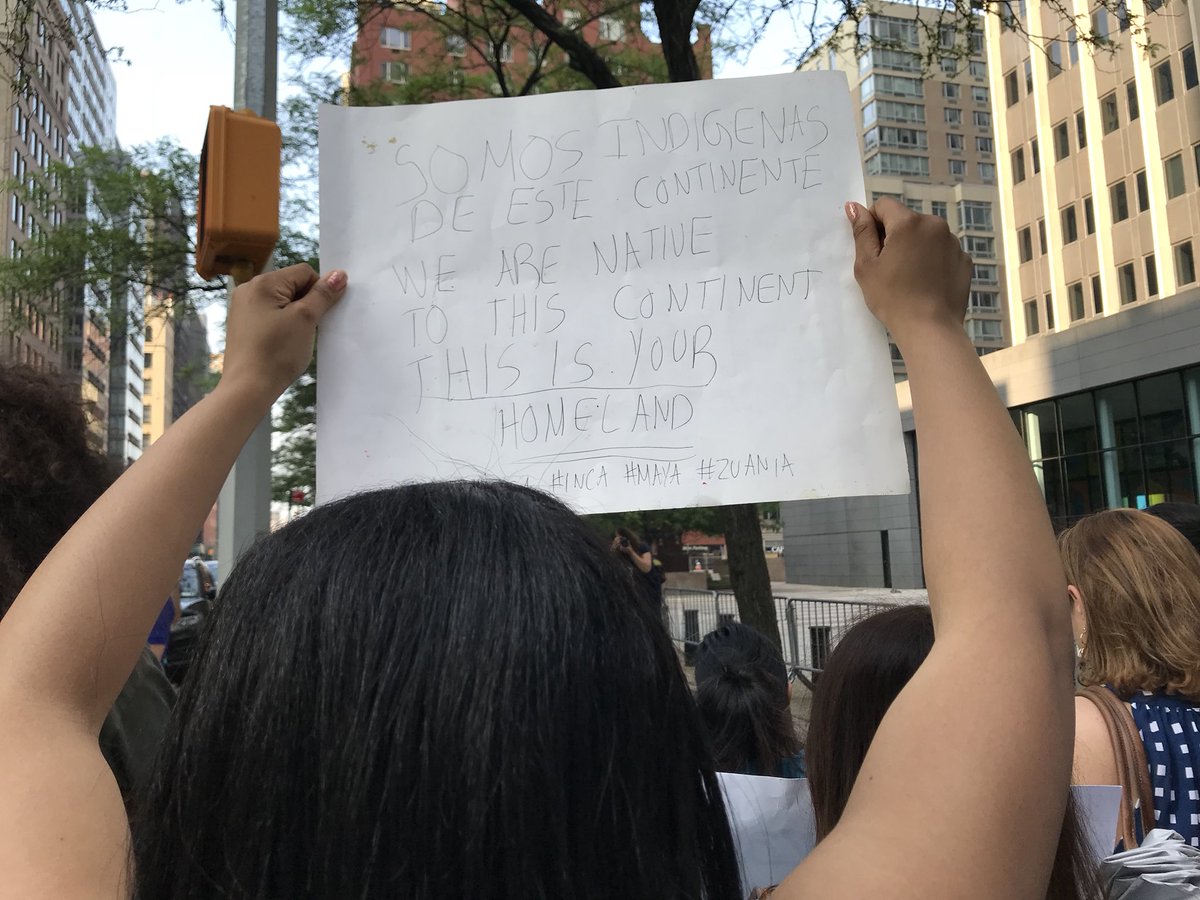 SOMOS INDIGENAS
DE ESTE CONTINENTE
WE ARE NATIVE
TO THIS CONTINENT
THIS IS YOUR
HOMELAND
#INCA #MAYA #ZUANIA